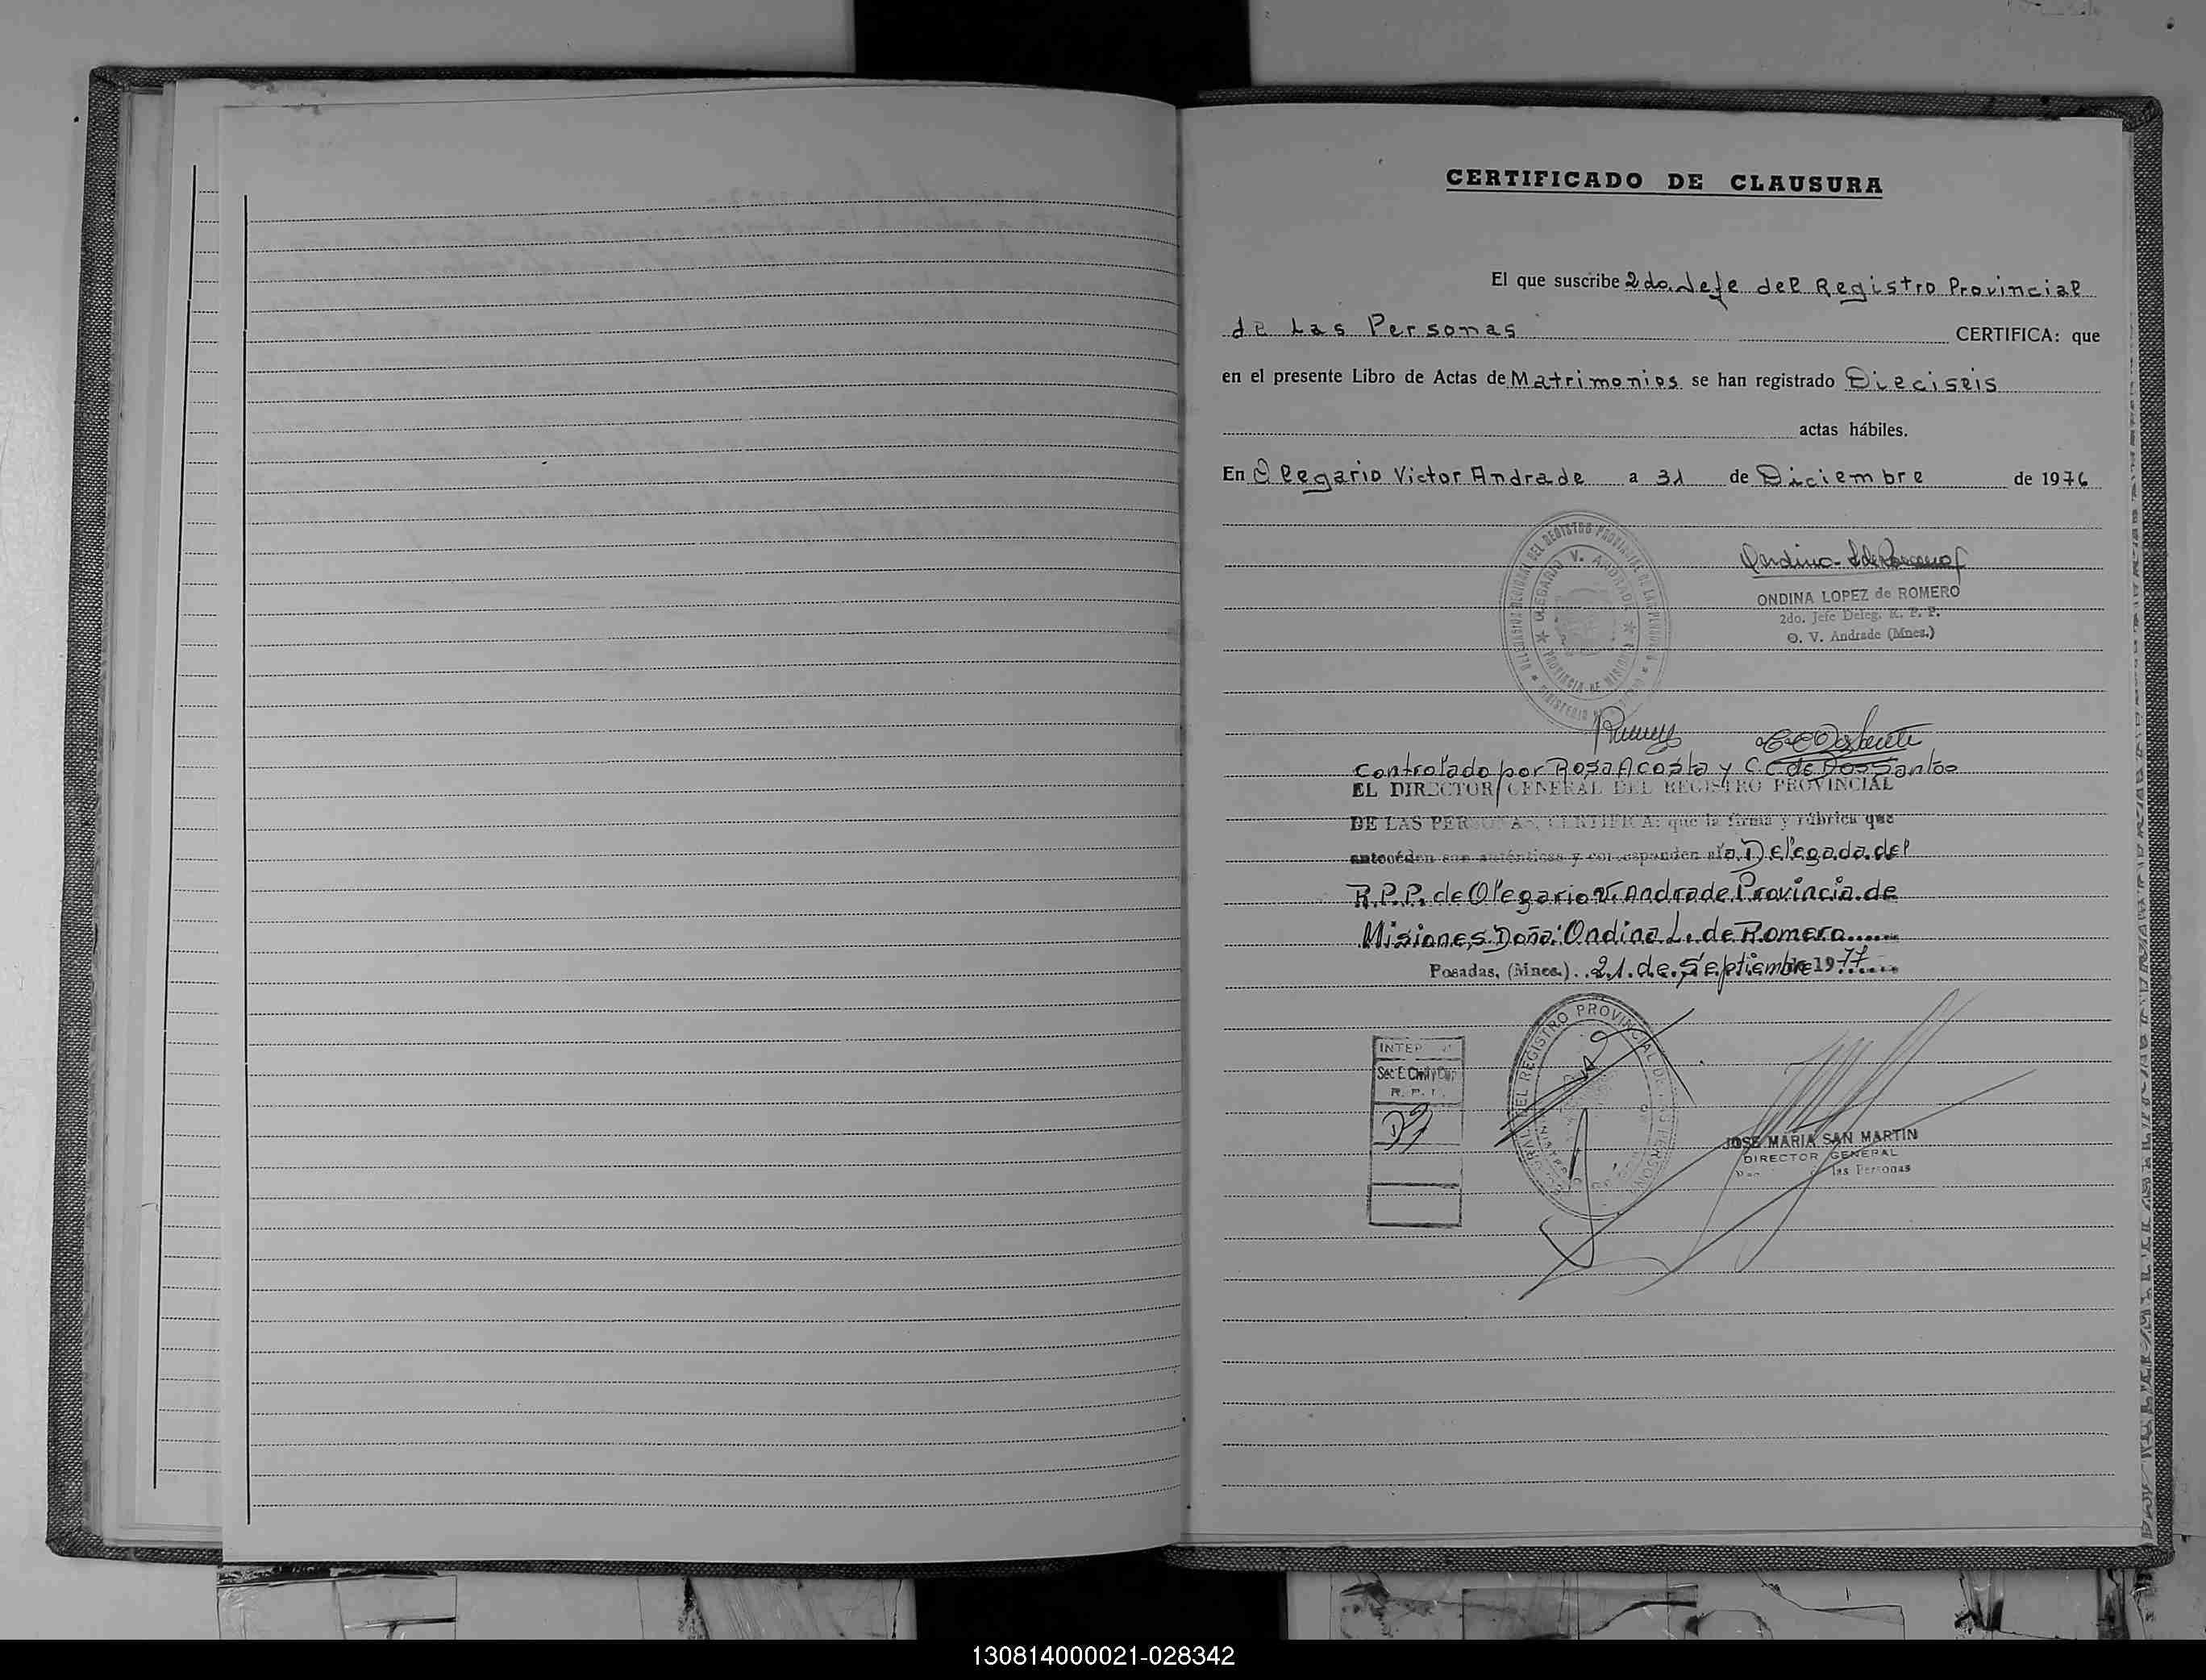 CERTIFICADO DE CLAUSURA
El que suscribe 2do. Jefe del Registro Provincial
de Las Personas CERTIFICA: que
en el presente Libro de Actas de Matrimonios se han registrado Dieciseis
actas hábiles.
En Olegario Victor Andrade a 31 de Diciembre de 1976
DELEGACION REGIONAL DEL REGISTRO PROVINCIAL DE LAS PERSONAS
OLEGARIO V. ANDRADE
PROVINCIA DE MISIONES
ONDINA LOPEZ de ROMERO
2do. Jefe Deleg. R. P. P.
O. V. Andrade (Mnes.)
Controlado por Rosa Acosta y C. C. de Dos Santos
EL DIRECTOR GENERAL DEL REGISTRO PROVINCIAL
DE LAS PERSONAS, CERTIFICA: que la firma y rúbrica que
anteceden son auténticas y corresponden a la Delegada del
R.P.P. de Olegario V. Andrade Provincia de
Misiones Doña: Ondina L. de Romero......
Posadas, (Mnes.) 21 de Septiembre de 1977
Sec. E. Civil y Cap.
JOSE MARIA SAN MARTIN
DIRECTOR GENERAL
las Personas
130814000021-028342